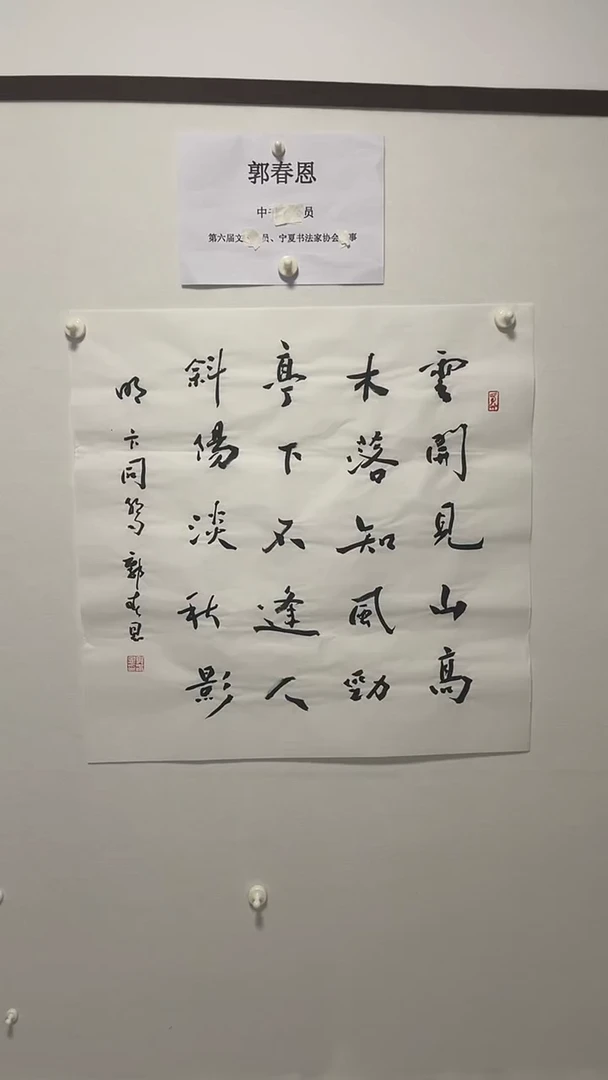 郭春恩
中 员
第六届文 员、宁夏书法家协会 事
雲開見山高
木落知風勁
亭下不逢人
斜陽淡秋影
明 卞同笃 郭春恩